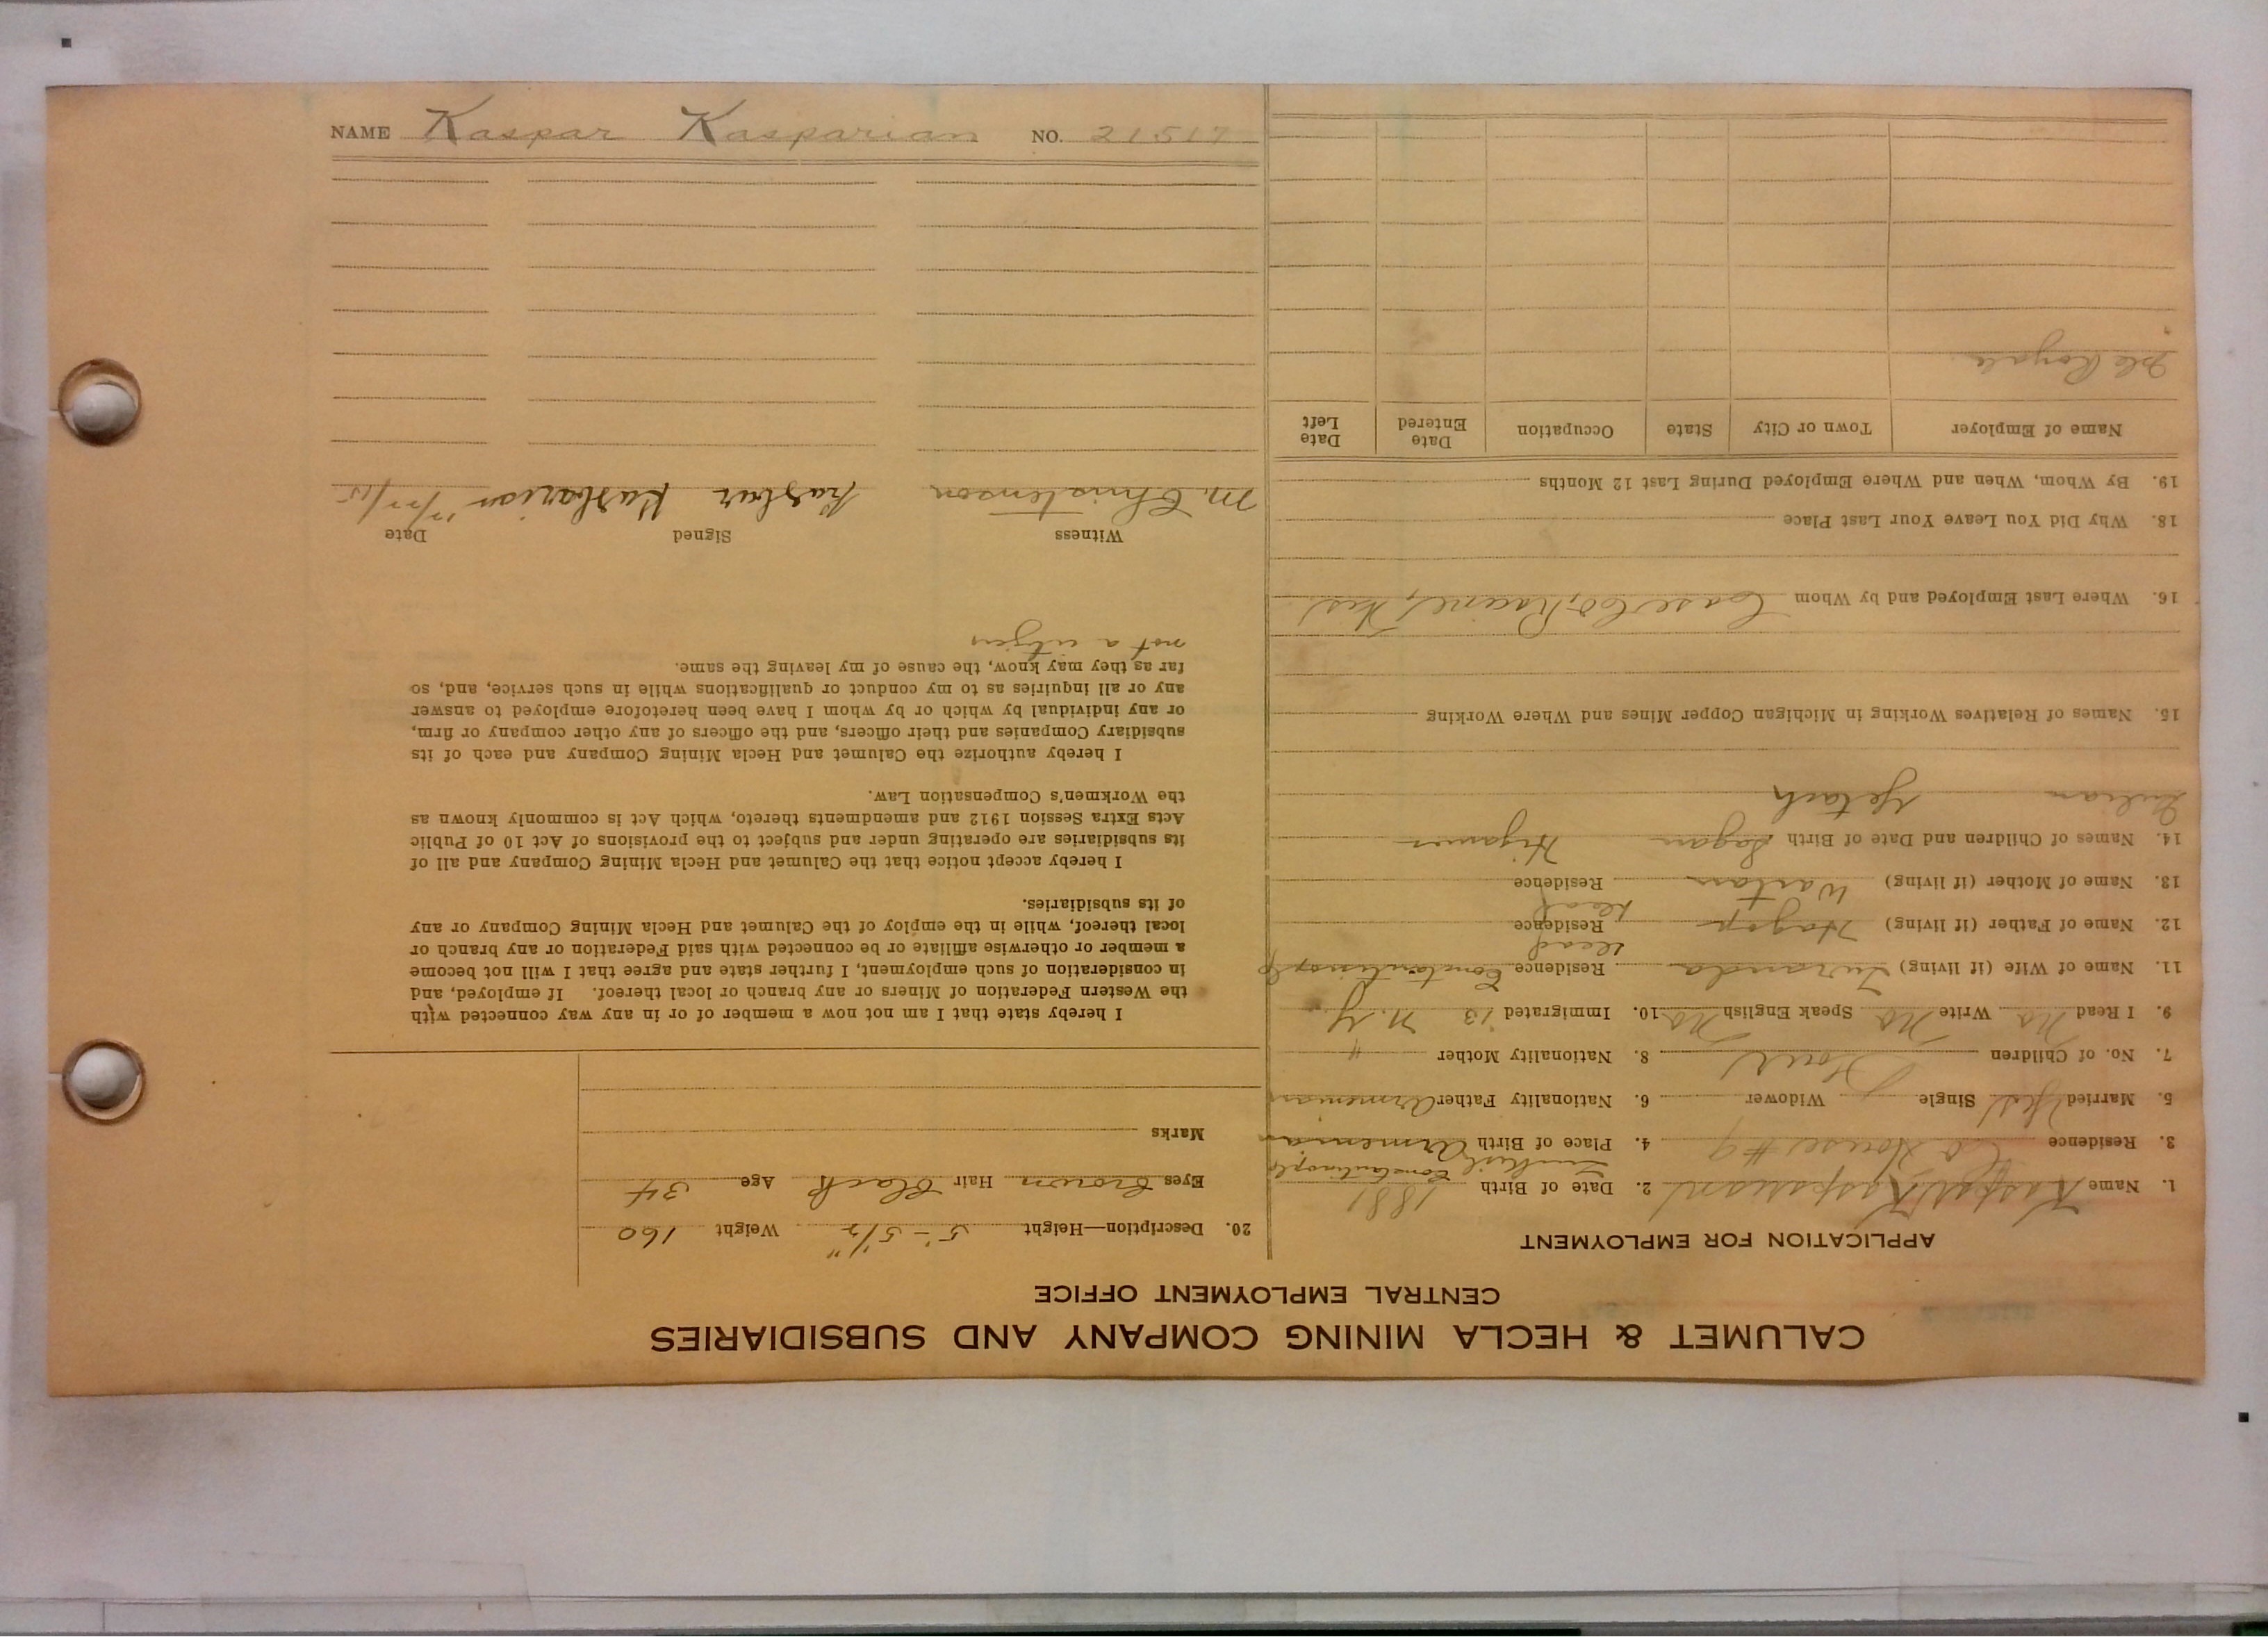 NAME Kaspar Kasparian NO. 21517
CALUMET & HECLA MINING COMPANY AND SUBSIDIARIES
CENTRAL EMPLOYMENT OFFICE
APPLICATION FOR EMPLOYMENT
1. Name Kaspar Kasparian 2. Date of Birth 1881
Constantinople
3. Residence Co House #9 4. Place of Birth Armenia
5. Married Yes Single Widower 6. Nationality Father Armenian
7. No. of Children Four 8. Nationality Mother "
9. I Read No Write No Speak English No 10. Immigrated 13 N.Y.
11. Name of Wife (if living) Residence Constantinople
dead
12. Name of Father (if living) Hagop Residence
dead
13. Name of Mother (if living) Wartan Residence
14. Names of Children and Date of Birth
15. Names of Relatives Working in Michigan Copper Mines and Where Working
16. Where Last Employed and by Whom Case Co, Racine, Wis
18. Why Did You Leave Your Last Place
19. By Whom, When and Where Employed During Last 12 Months
Name of Employer Town or City State Occupation Date Entered Date Left
Isle Royale
20. Description—Height 5'-5 1/2" Weight 160
Eyes Brown Hair Black Age 34
Marks
I hereby state that I am not now a member of or in any way connected with
the Western Federation of Miners or any branch or local thereof. If employed, and
in consideration of such employment, I further state and agree that I will not become
a member or otherwise affiliate or be connected with said Federation or any branch or
local thereof, while in the employ of the Calumet and Hecla Mining Company or any
of its subsidiaries.
I hereby accept notice that the Calumet and Hecla Mining Company and all of
its subsidiaries are operating under and subject to the provisions of Act 10 of Public
Acts Extra Session 1912 and amendments thereto, which Act is commonly known as
the Workmen's Compensation Law.
I hereby authorize the Calumet and Hecla Mining Company and each of its
subsidiary Companies and their officers, and the officers of any other company or firm,
or any individual by which or by whom I have been heretofore employed to answer
any or all inquiries as to my conduct or qualifications while in such service, and, so
far as they may know, the cause of my leaving the same.
not a citizen
Witness Signed Date
M. Christenson Kaspar Kasparian